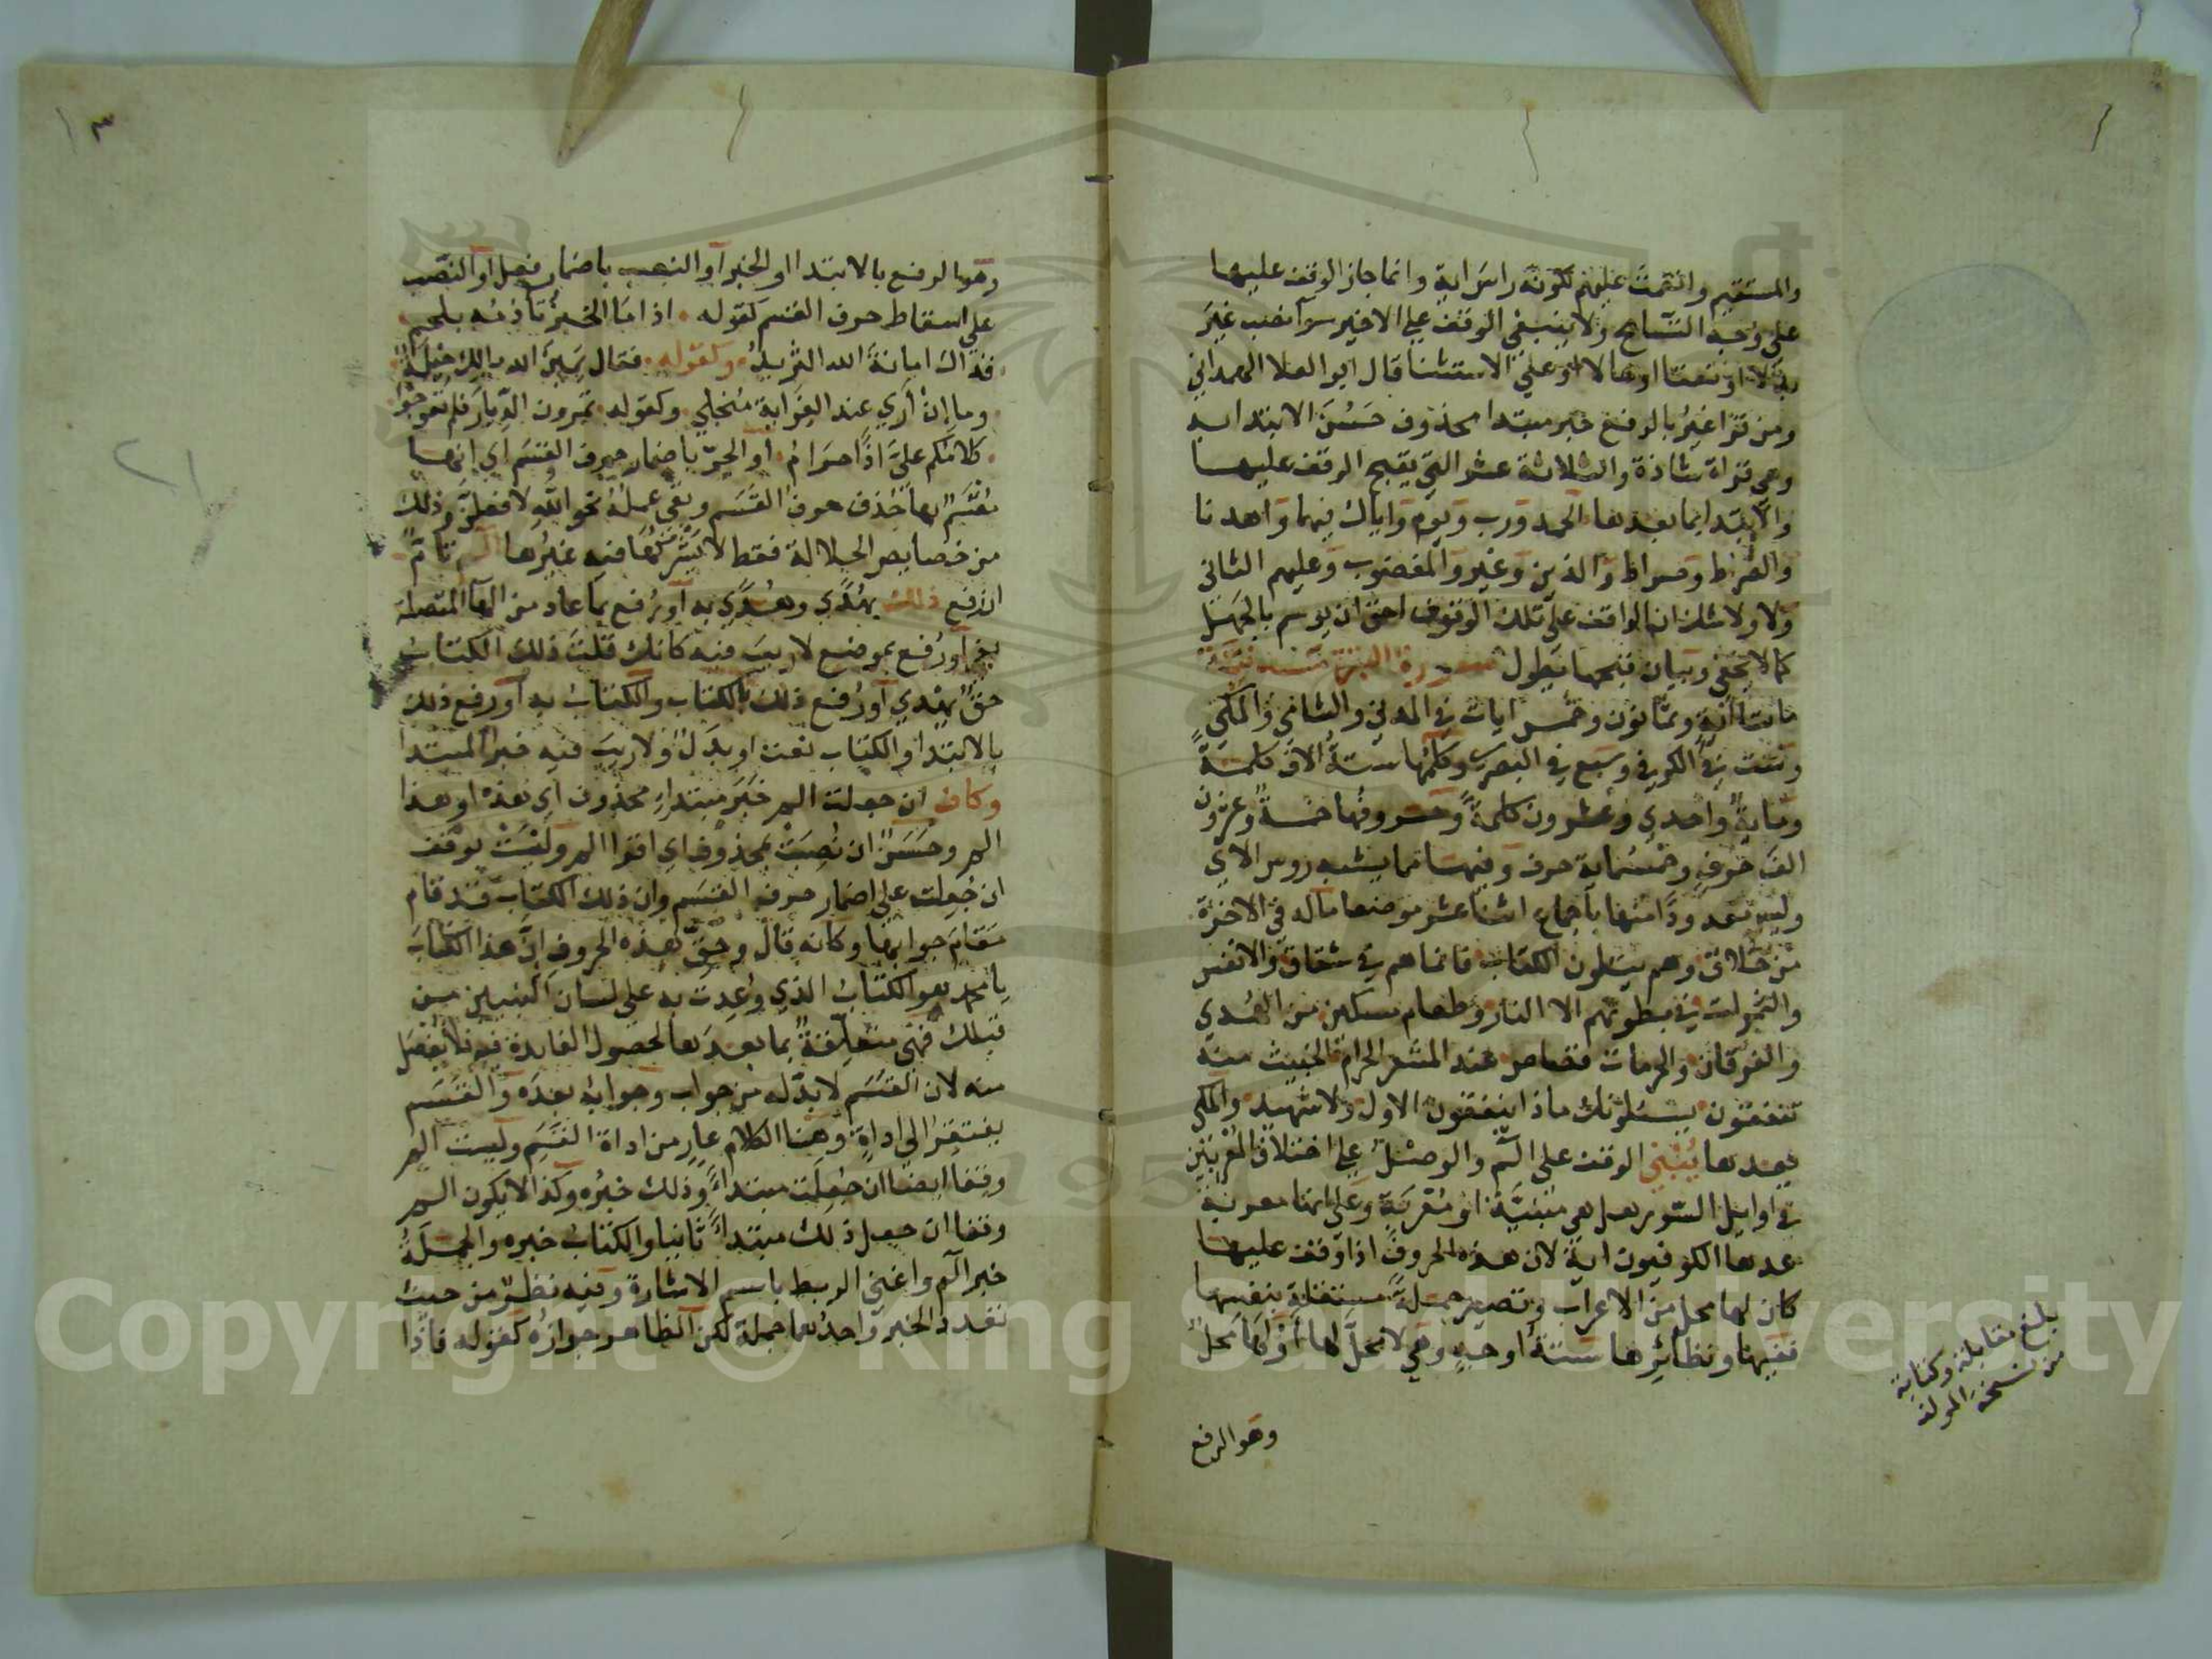 والمستقيم وانعمت عليهم لكونه راس اية وانما جاز الوقف عليها
على وجه التسامح ولا ينبغي الوقف على الاخير سوا نصب غير
بدلا او نعتا او حالا او على الاستثنا قال ابو العلا الهمداني
ومن قرا غير بالرفع خبر مبتدا محذوف حسن الابتدا به
وهي قراة شاذة والثلاثة عشر التي يقبح الوقف عليها
والابتدا بما بعدها الحمد ورب ويوم واياك فيهما واهدنا
والصراط وصراط والذين وغير والمغضوب وعليهم الثاني
ولا ولا شك ان الواقف على تلك الوقوف احق ان يوسم بالجهل
كما لا يخفى وبيان قبحها يطول سورة البقرة مدنية
مايتا اية وثمانون وخمس ايات في المدني والشامي والمكي
وست في الكوفي وسبع في البصري وكلمها ستة الاف كلمة
وماية واحدي وعشرون كلمة وحروفها خمسة وعشرون
الف حرف وخمسماية حرف وفيها مما يشبه روس الاي
وليس معدودا منها باجماع اثنا عشر موضعا ماله في الاخرة
من خلاق وهم يتلون الكتاب فانما هم في شقاق والانفس
والثمرات في بطونهم الا النار وطعام مسكين من الهدي
والفرقان والحرمات قصاص عند المشعر الحرام الخبيث منه
تنفقون يسئلونك ماذا ينفقون الاول ولا شهيد والمكي
يعدها يُبْنَي الوقف على الم والوصل على اختلاف المعربين
في اوايل السور هل هي مبنية او معربة وعلى انها معربة
عدها الكوفيون اية لان هذه الحروف اذا وقف عليها
كان لها محل من الاعراب وتصير جملة مستقلة بنفسها
ففيها ونظائرها ستة اوجه وهي لا محل لها او لها محل
وهو الرفع
بلغ مقابلة وكتابة
من نسخة المولف
٣
وهو الرفع بالابتدا او الخبر او النصب باضمار فعل او النصب
على اسقاط حرف القسم كقوله اذا ما الخبز تأدمه بلحم
فذاك امانة الله الثريد وكقوله فقال يمين الله مالك حيلة
وما إن أري عند الغواية منجلي وكقوله تمرون الديار فلم تعوجوا
كلامكم عليّ اذا حرام او الجرّ باضمار حرف القسم اي انها
مقسم بها حذف حرف القسم وبقى عمله نحو اللهِ لافعلن وذلك
من خصايص الجلالة فقط لا يشركها فيه غيرها الم تامّ
ان رفع ذلك بهدي وهدي به او رفع بما عاد من الها المتصلة
بفي او رفع بموضع لا ريب فيه كانك قلت ذلك الكتاب
حق بهدي او رفع ذلك بالكتاب والكتاب به او رفع ذلك
بالابتدا والكتاب نعت او بدل ولا ريب فيه خبر المبتدا
وكاف ان جعلت الم خبر مبتداء محذوف اي هذه او هذا
الم وحسن ان نصبت بمحذوف اي اقرا الم وليست بوقف
ان جعلت على اضمار حرف القسم وان ذلك الكتاب قد قام
مقام جوابها وكانه قال وحق هذه الحروف ان هذا الكتاب
يا محمد هو الكتاب الذي وُعدت به على لسان النبيين من
قبلك فهي متعلقة بما بعدها لحصول الفايدة فيه فلا يفصل
منه لان القسم لا بدّ له من جواب وجوابه بعده والقسم
يفتقر الى اداة وهنا الكلام عار من اداة القسم وليست الم
وقفا ايضا ان جعلت مبتداء وذلك خبره وكذا لا يكون الم
وقفا ان جعل ذلك مبتداء ثانيا والكتاب خبره والجملة
خبر الم واغنى الربط باسم الاشارة وفيه نظر من حيث
تعدد الخبر واحدهما جملة لكن الظاهر جوازه كقوله فاذا
Copyright © King Saud University
1957